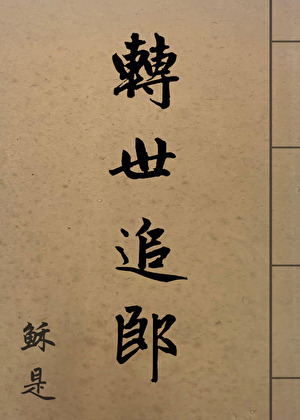 轉世追郎
穌是